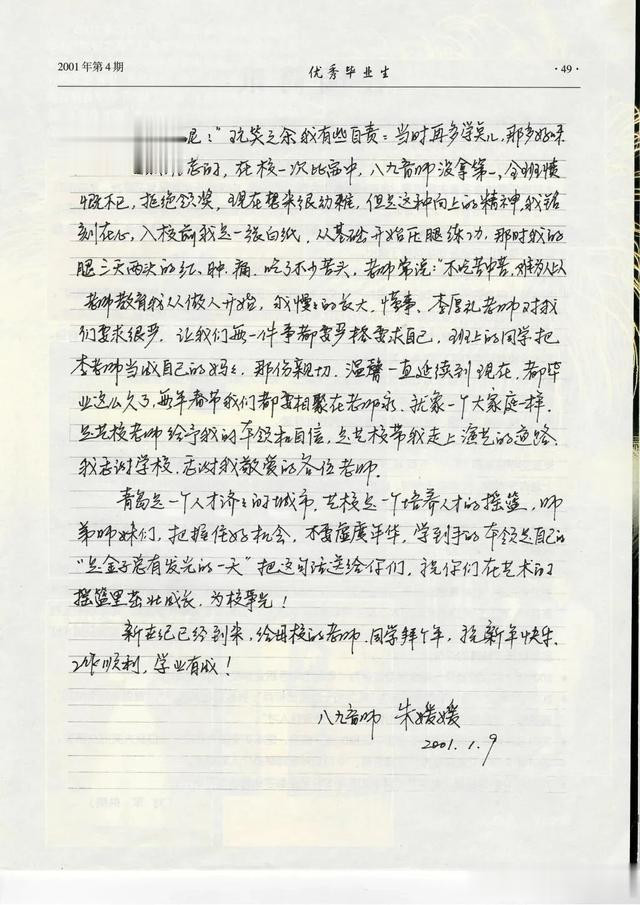 2001年第4期 优秀毕业生 ·49·
尼:“玩笑之余我有些自责:当时再多学点儿,那多好呀
总的,在校一次比赛中,八九音师没拿第一,全班愤
慨不已,拒绝领奖,现在想来很幼稚,但是这种向上的精神,我铭
刻在心,入校前我是一张白纸,从基础开始压腿练功,那时我的
腿三天两头的红、肿、痛,吃了不少苦头,老师常说:“不吃苦中苦,难为人上人
老师教育我从做人开始,我慢慢的长大、懂事、李厚礼老师对我
们要求很严,让我们每一件事都要严格要求自己,班上的同学把
李老师当成自己的妈妈,那份亲切、温馨一直延续到现在,都毕
业这么久了,每年春节我们都要相聚在老师家,就象一个大家庭一样,
是艺校老师给予我的本领和自信,是艺校带我走上演艺的道路
我感谢学校,感谢我敬爱的各位老师.
青岛是一个人才济济的城市,艺校是一个培养人才的摇篮,师
弟师妹们,把握住好机会,不要虚度年华,学到手的本领是自己的
“是金子总有发光的一天”把这句话送给你们,祝你们在艺术的
摇篮里茁壮成长,为校争光!
新世纪已经到来,给母校的老师、同学拜个年,祝新年快乐、
工作顺利,学业有成!
八九音师 朱媛媛
2001.1.9